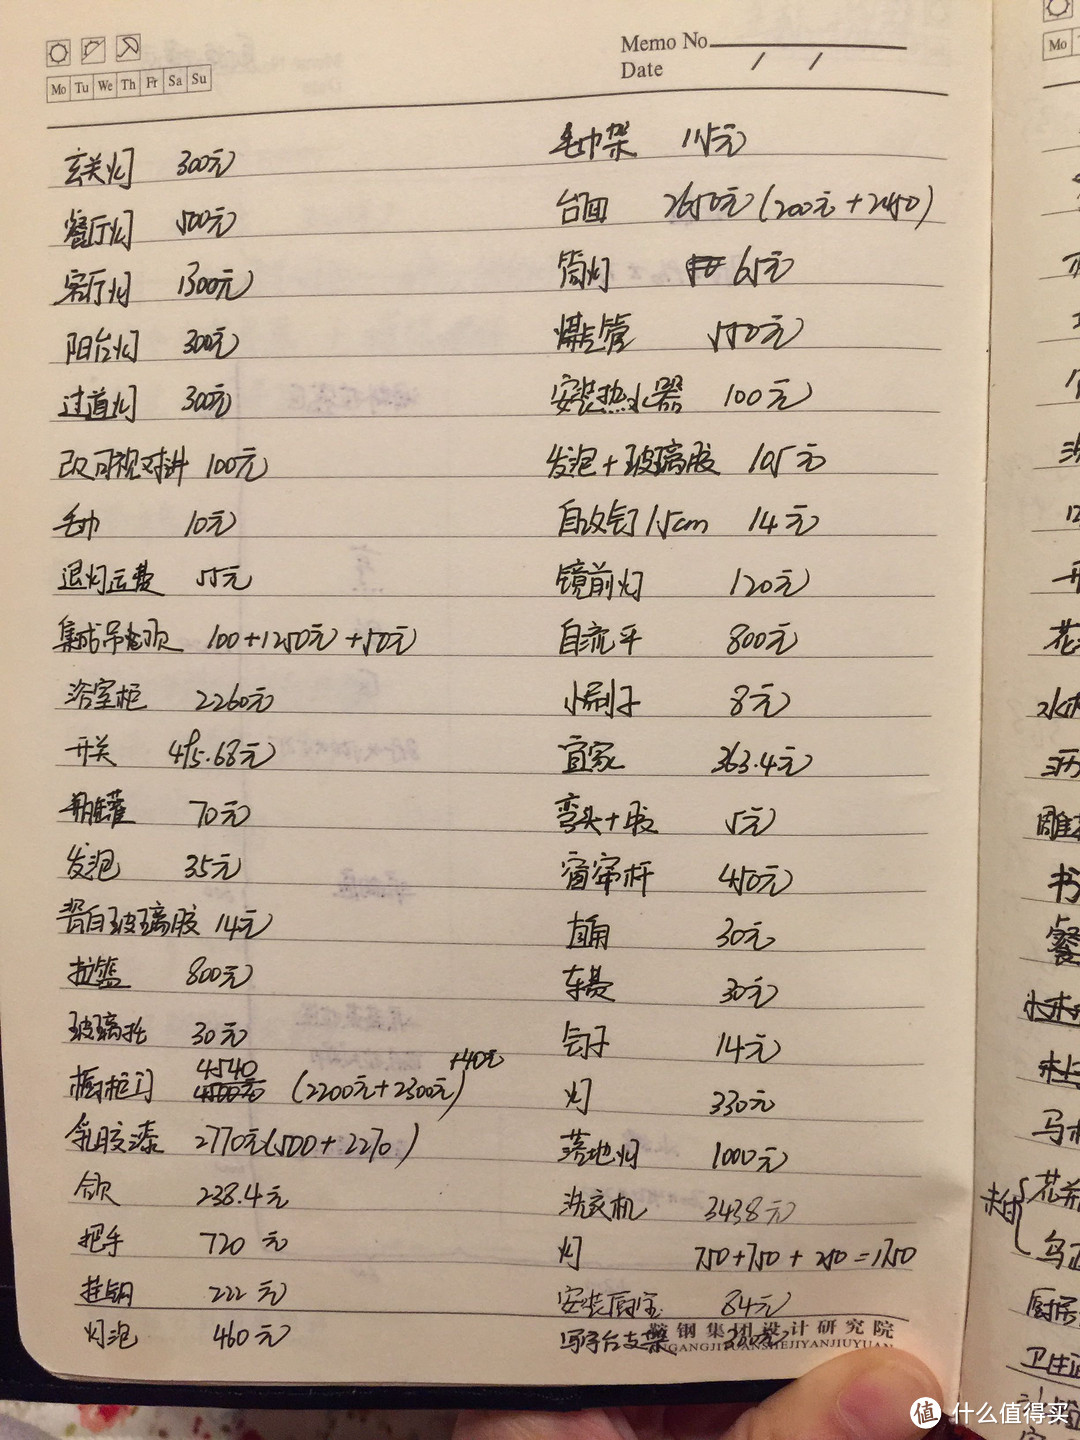 Memo No
Date / /
Mo Tu We Th Fr Sa Su
玄关灯 300元
餐厅灯 500元
客厅灯 1300元
阳台灯 300元
过道灯 300元
改可视对讲 100元
毛巾 10元
退灯运费 55元
集成吊顶 100+1250元+50元
浴室柜 2260元
开关 495.68元
瓶罐 70元
发泡 35元
瓷白玻璃胶 14元
拉篮 800元
玻璃托 30元
橱柜门 4540 4500元 (2200元+2300元) +40元
乳胶漆 2770元(500+2270)
238.4元
把手 720元
挂钩 222元
灯泡 460元
毛巾架 115元
台面 2650元(200元+2450)
筒灯 65元
煤气管 550元
安装热水器 100元
发泡+玻璃胶 105元
自攻钉15cm 14元
镜前灯 120元
自流平 800元
小刷子 8元
宜家 363.4元
弯头+胶 5元
窗帘杆 450元
直角 30元
车费 30元
钉子 14元
灯 330元
落地灯 1000元
洗衣机 3438元
灯 750+750+250=1750
安装厨宝 84元
写字台支架
鞍钢集团设计研究院
GANGJITUANSHEJIYANJIUYUAN
Mo
书
餐
马
花
厨房
值 什么值得买